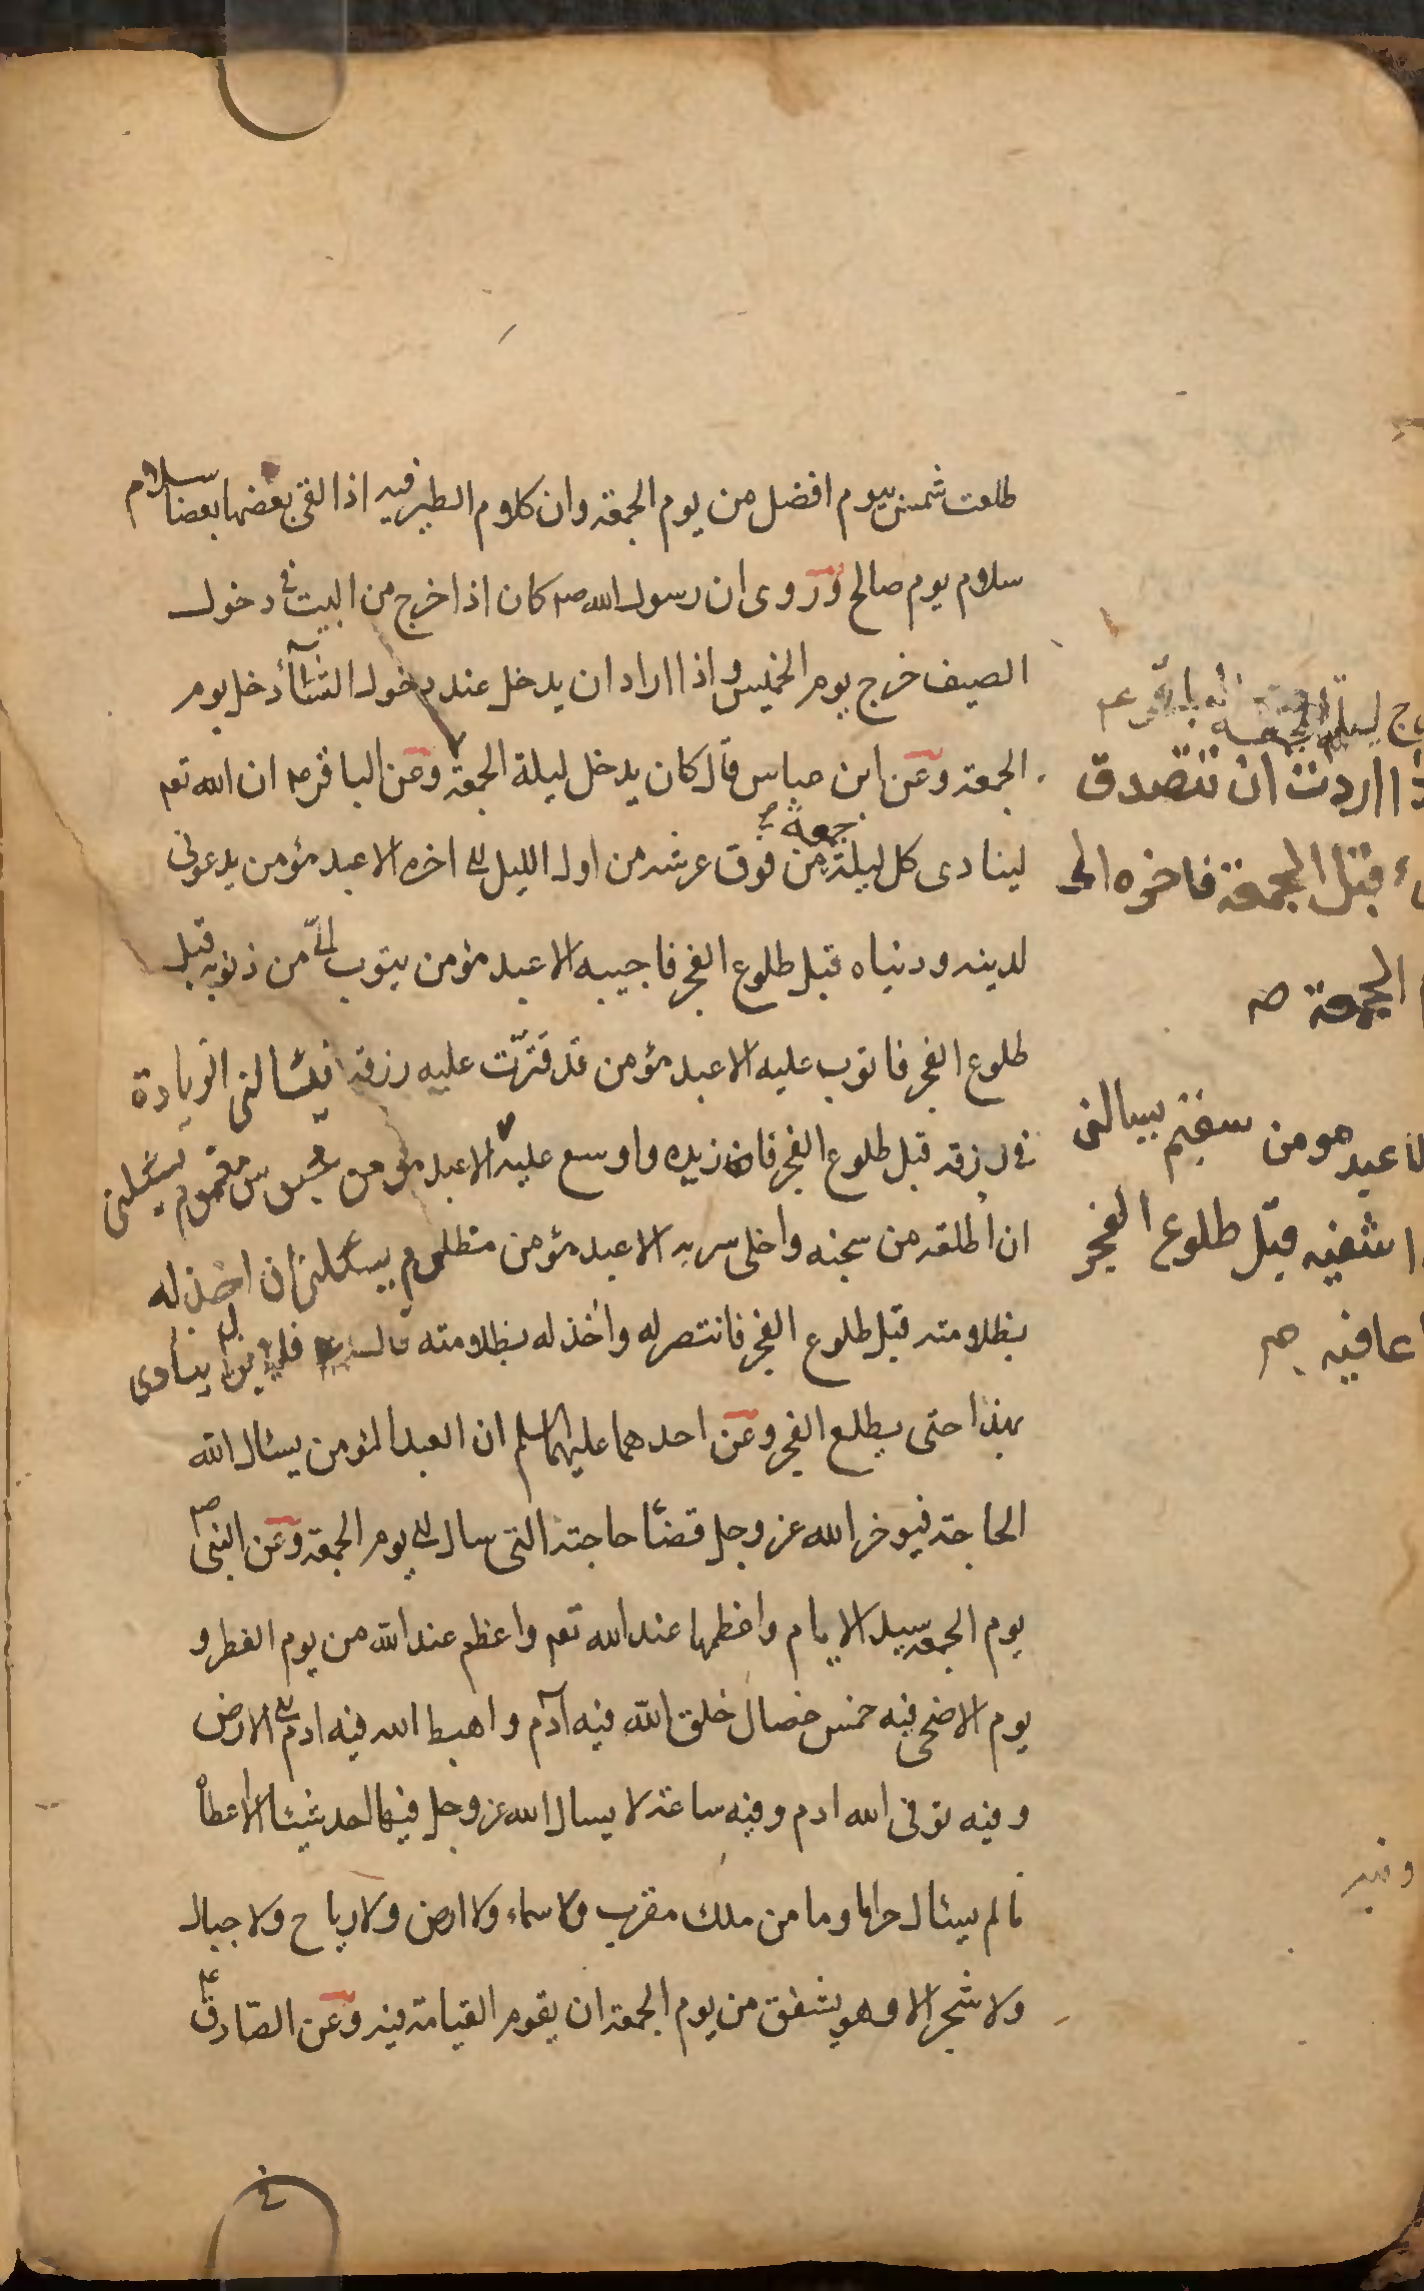 طلعت شمس بيوم افضل من يوم الجمعة وان كلام الطير فيه اذا لقى بعضها بعضا سلام
سلام يوم صالح وروى ان رسول الله ص كان اذا خرج من البيت فى دخول
الصيف خرج يوم الخميس واذا اراد ان يدخل عند دخول الشتآء دخل يوم
الجمعة وعن ابن عباس قال كان يدخل ليلة الجمعة وعن الباقر عم ان الله تعم
لينادى كل ليلة جمعة من فوق عرشه من اول الليل الى اخره الا عبد مؤمن يدعونى
لدينه ودنياه قبل طلوع الفجر فاجيبه الا عبد مؤمن يتوب الىّ من ذنوبه قبل
طلوع الفجر فاتوب عليه الا عبد مؤمن قد قترّت عليه رزقه فيسٔالنى الزيادة
فى رزقه قبل طلوع الفجر فازيده واوسع عليه الا عبد مؤمن محبوس مغموم يسئلنى
ان اطلقه من سجنه واخلى سربه الا عبد مؤمن مظلوم يسئلنى ان اخذ له
بظلامته قبل طلوع الفجر فانتصر له واخذ له بظلامته قال فلا يزال ينادى
بهذا حتى يطلع الفجر وعن احدهما عليهما السلم ان العبد المؤمن يسئال الله
الحاجة فيوخر الله عز وجل قضآء حاجته التى سال الى يوم الجمعة وعن النبى ص
يوم الجمعه سيد الايام واعظمها عند الله تعم واعظم عند الله من يوم الفطر و
يوم الاضحى فيه خمس خصال خلق الله فيه آدم واهبط الله فيه ادم الى الارض
وفيه توفى الله ادم وفيه ساعة لا يسال الله عز وجل فيها احد شيئا الا اعطاه
مالم يسئال حراما وما من ملك مقرب ولا سماء ولا ارض ولا رياح ولا جبال
ولا شجر الا وهو يشفق من يوم الجمعة ان يقوم القيامة فيه وعن الصّادق ع
ليلة الجمعة عم
اردت ان تتصدق
قبل الجمعة فاخره الى
الجمعة صه
عبد مومن سقيم يسالنى
اشفيه قبل طلوع الفجر
عافيه صه
وفيه